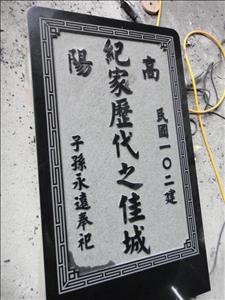 高陽
民國一〇二建
紀家歷代之佳城
子孫永遠奉祀